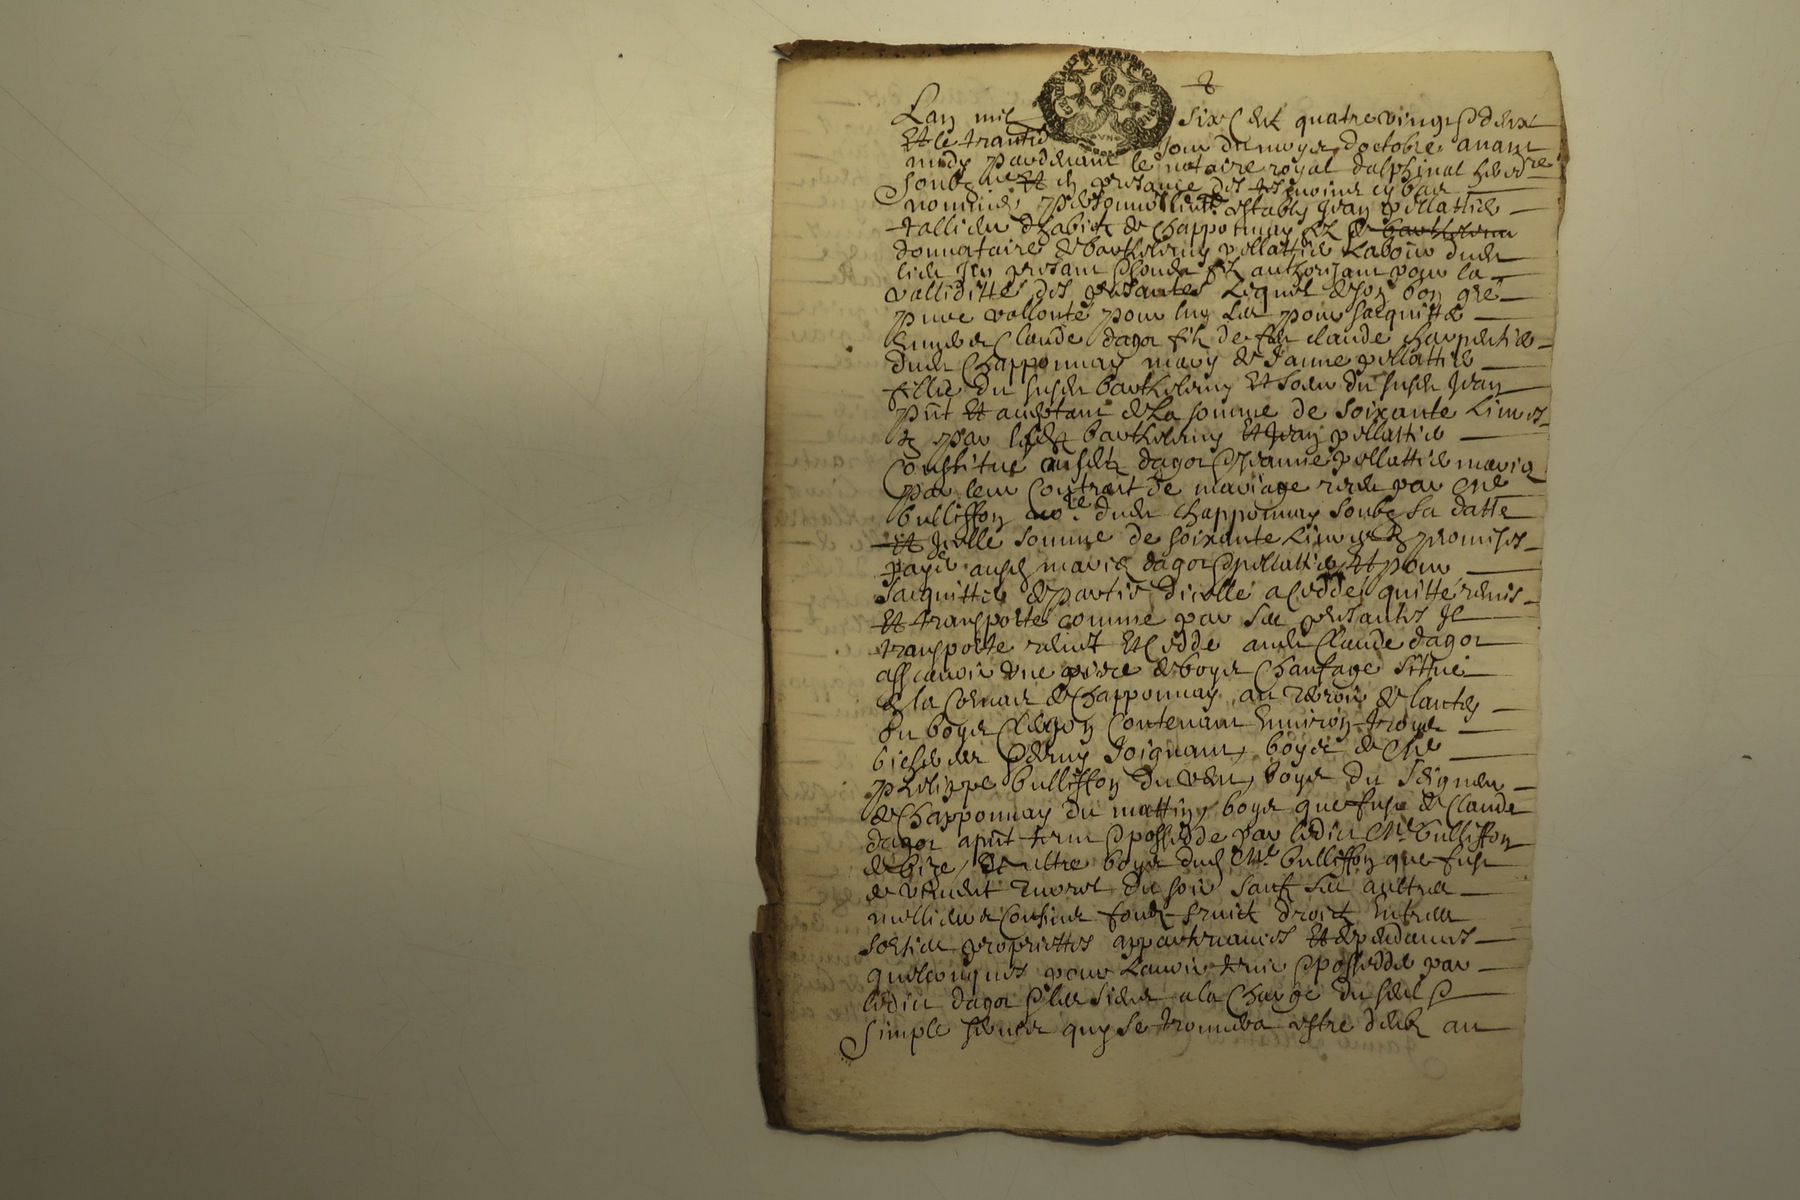 Lan mil six Cent quatre vingt & deux
Et le trantie Jour du moys doctobre avant
midy pardevant le notaire royal dalphinal hered.re
soubz.né Et en presance des tesmoins cy bas
nommés personnellem.t estably Jean pellattier
tallieur dhabitz de Chapponnay filz & barthelemy
donnataire de barthelemy pellattier Laboür dud.
lieu Icy presant & lond. filz authorisant pour la
validitté des presantes Lequel de son bon gré
pure vollonté pour luy Les pour sacquitter
Envers Claude dagot filz de feu claude charpentier
dud. Chapponnay mary de Janne pellattier
fillie du susd. barthelemy Et soeur du susd. Jean
pnt Et aceptant de La somme de soixante Livres
tz par lesd. barthelemy Et Jean pellattier
Constitué ausd. dagot & Jeanne pellattier mariés
par leur Contract de mariage receu par Me
bulliffon no.re dud. Chapponnay soubz sa datte
Et Icelle somme de soixante Livres tz promises
payer ausd. mariés dagot & pellattier Et pour
sacquitter de partie dicelle a Ceddé quitté remis
Et transporté comme par Les presantes Il
transporte remet Et Cedde aud. Claude dagot
assavoir une piece de boys Chaufage sittué
a la Comune de Chapponnay au terroir de
du boys Contenant Environ troys
bicherées & demy Joignant boys de Me
philippe bulliffon du vent, boys du seigneur
de Chapponnay du mattin, boys que fust de Claude
dagot apnt tenu & possedde par ledict Me bulliffon
de bize, Et aultre boys dud. Me bulliffon que fust
de vincent du soir sauf Les aultres
mellieurs Confins fondz fruict droictz Entrées
sorties proprietés appartenances Et dependances
quelconques pour Lavoir tenir & possedder par
ledict dagot & les siens a la Charge du
simple servis quy se trouvera estre deub au